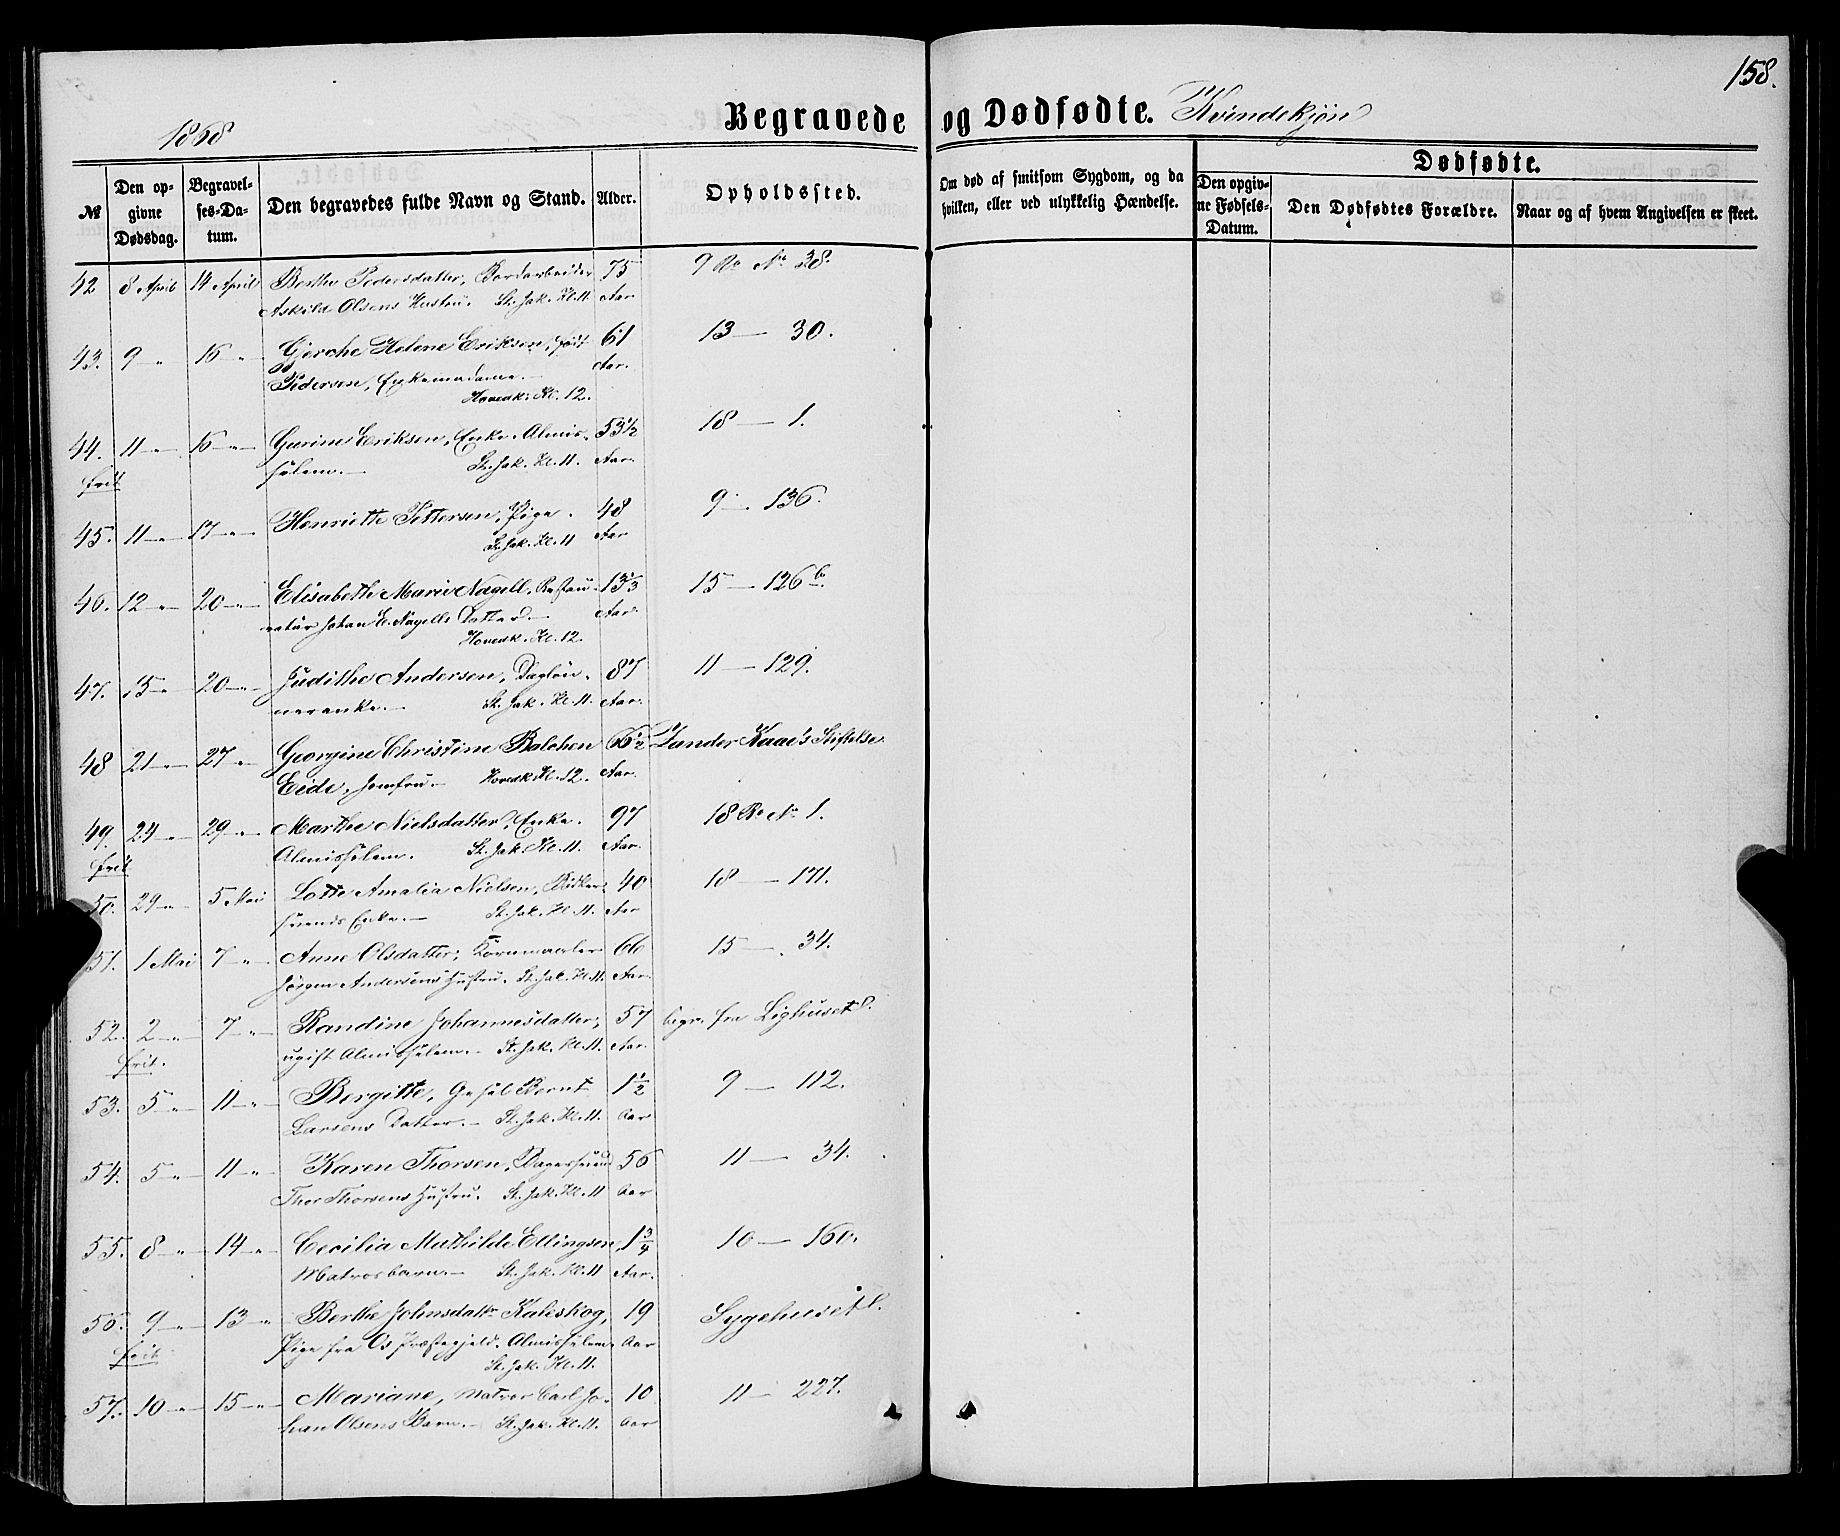 158.
1868
Begravede og Dødfødte. Kvindekjøn
№ | Den opgivne Dødsdag. | Begravelses-Datum. | Den begravedes fulde Navn og Stand. | Alder. | Opholdssted. | Om død af smitsom Sygdom, og da hvilken, eller ved ulykkelig Hændelse. | Dødfødte. | Den opgivne Fødsels-Datum. | Den Dødfødtes Forældre. | Naar og af hvem Angivelsen er skeet.
42 8 April 14 April Berthe Pedersdatter, Bordarbeider 75 9 Ro No 38.
Askild Olsens Hustru. St. Jak. Kl. 11. Aar
43. 9 " 16 " Gjerche Helene Eriksen, født 61 13 — 30.
Pedersen, Enkemadame. — Aar.
Hovedk. Kl. 12.
44. 11 " 16 " Gurine Eriksen, Enke. Almis- 53 1/2 18 — 1.
frit sælem. — St. Jak. Kl. 11. Aar.
45. 11 " 17 " Henriette Pettersen, Pige. 48 9 — 136.
St. Jak. Kl. 11 Aar
46. 12 " 20 " Elisabeth Marie Nagell, Restau- 13 2/3 15 — 126 b.
ratør Johan E. Nagells Datter. — Aar.
Hovedk. Kl. 12.
47. 15 " 20 " Judithe Andersen, Dagløn- 87 11 — 129.
nerenke. — St. Jak. Kl. 11. Aar.
48 21 " 27 " Georgine Christine Balchen 66 1/2 Zander Kaae's Stiftelse
Eide, Jomfru. — Hovedk. Kl. 12. Aar.
49. 24 " 29 " Marthe Nielsdatter, Enke. 97 18 Ro No 1.
frit Almissелem. St. Jak. Kl. 11. Aar.
50. 29 " 5 Mai Lotte Amalia Nielsen, Bødker- 40 18 — 171.
svends Enke. — St. Jak. Kl. 11. Aar
51. 1 Mai 7 " Anne Olsdatter, Kornmaaler 66 15 — 34.
Jørgen Andersens Hustru. St. Jak. Kl. 11. Aar.
52. 2 " 7 " Randine Johannesdatter, 57 begr. fra Lighuset.
frit. ugift Almisselem. — St. Jak. Kl. 11. Aar.
53. 5 " 11 " Bergitte, Gesel Bernt 1 1/2 9 — 112.
Larsens Datter. — St. Jak. Kl. 11. Aar
54. 5 " 11 " Karen Thorsen, Bagersvend 56 11 — 34.
Thor Thorsens Hustru. St. Jak. Kl. 11 Aar
55. 8 " 14 " Cecilia Mathilde Ellingsen, 1 3/4 10 — 160.
Matrosbarn. — St. Jak. Kl. 11 Aar.
56. 9 " 13 " Berthe Johnsdatr Kaleskog, 19 Sygehuset.
frit Pige fra Os Præstegjeld. Almisselem Aar
St. Jak. Kl. 11.
57. 10 " 15 " Mariane, Matros Carl Jo- 10 11 — 227.
han Olsens Barn. — St. Jak. Kl. 11. Aar